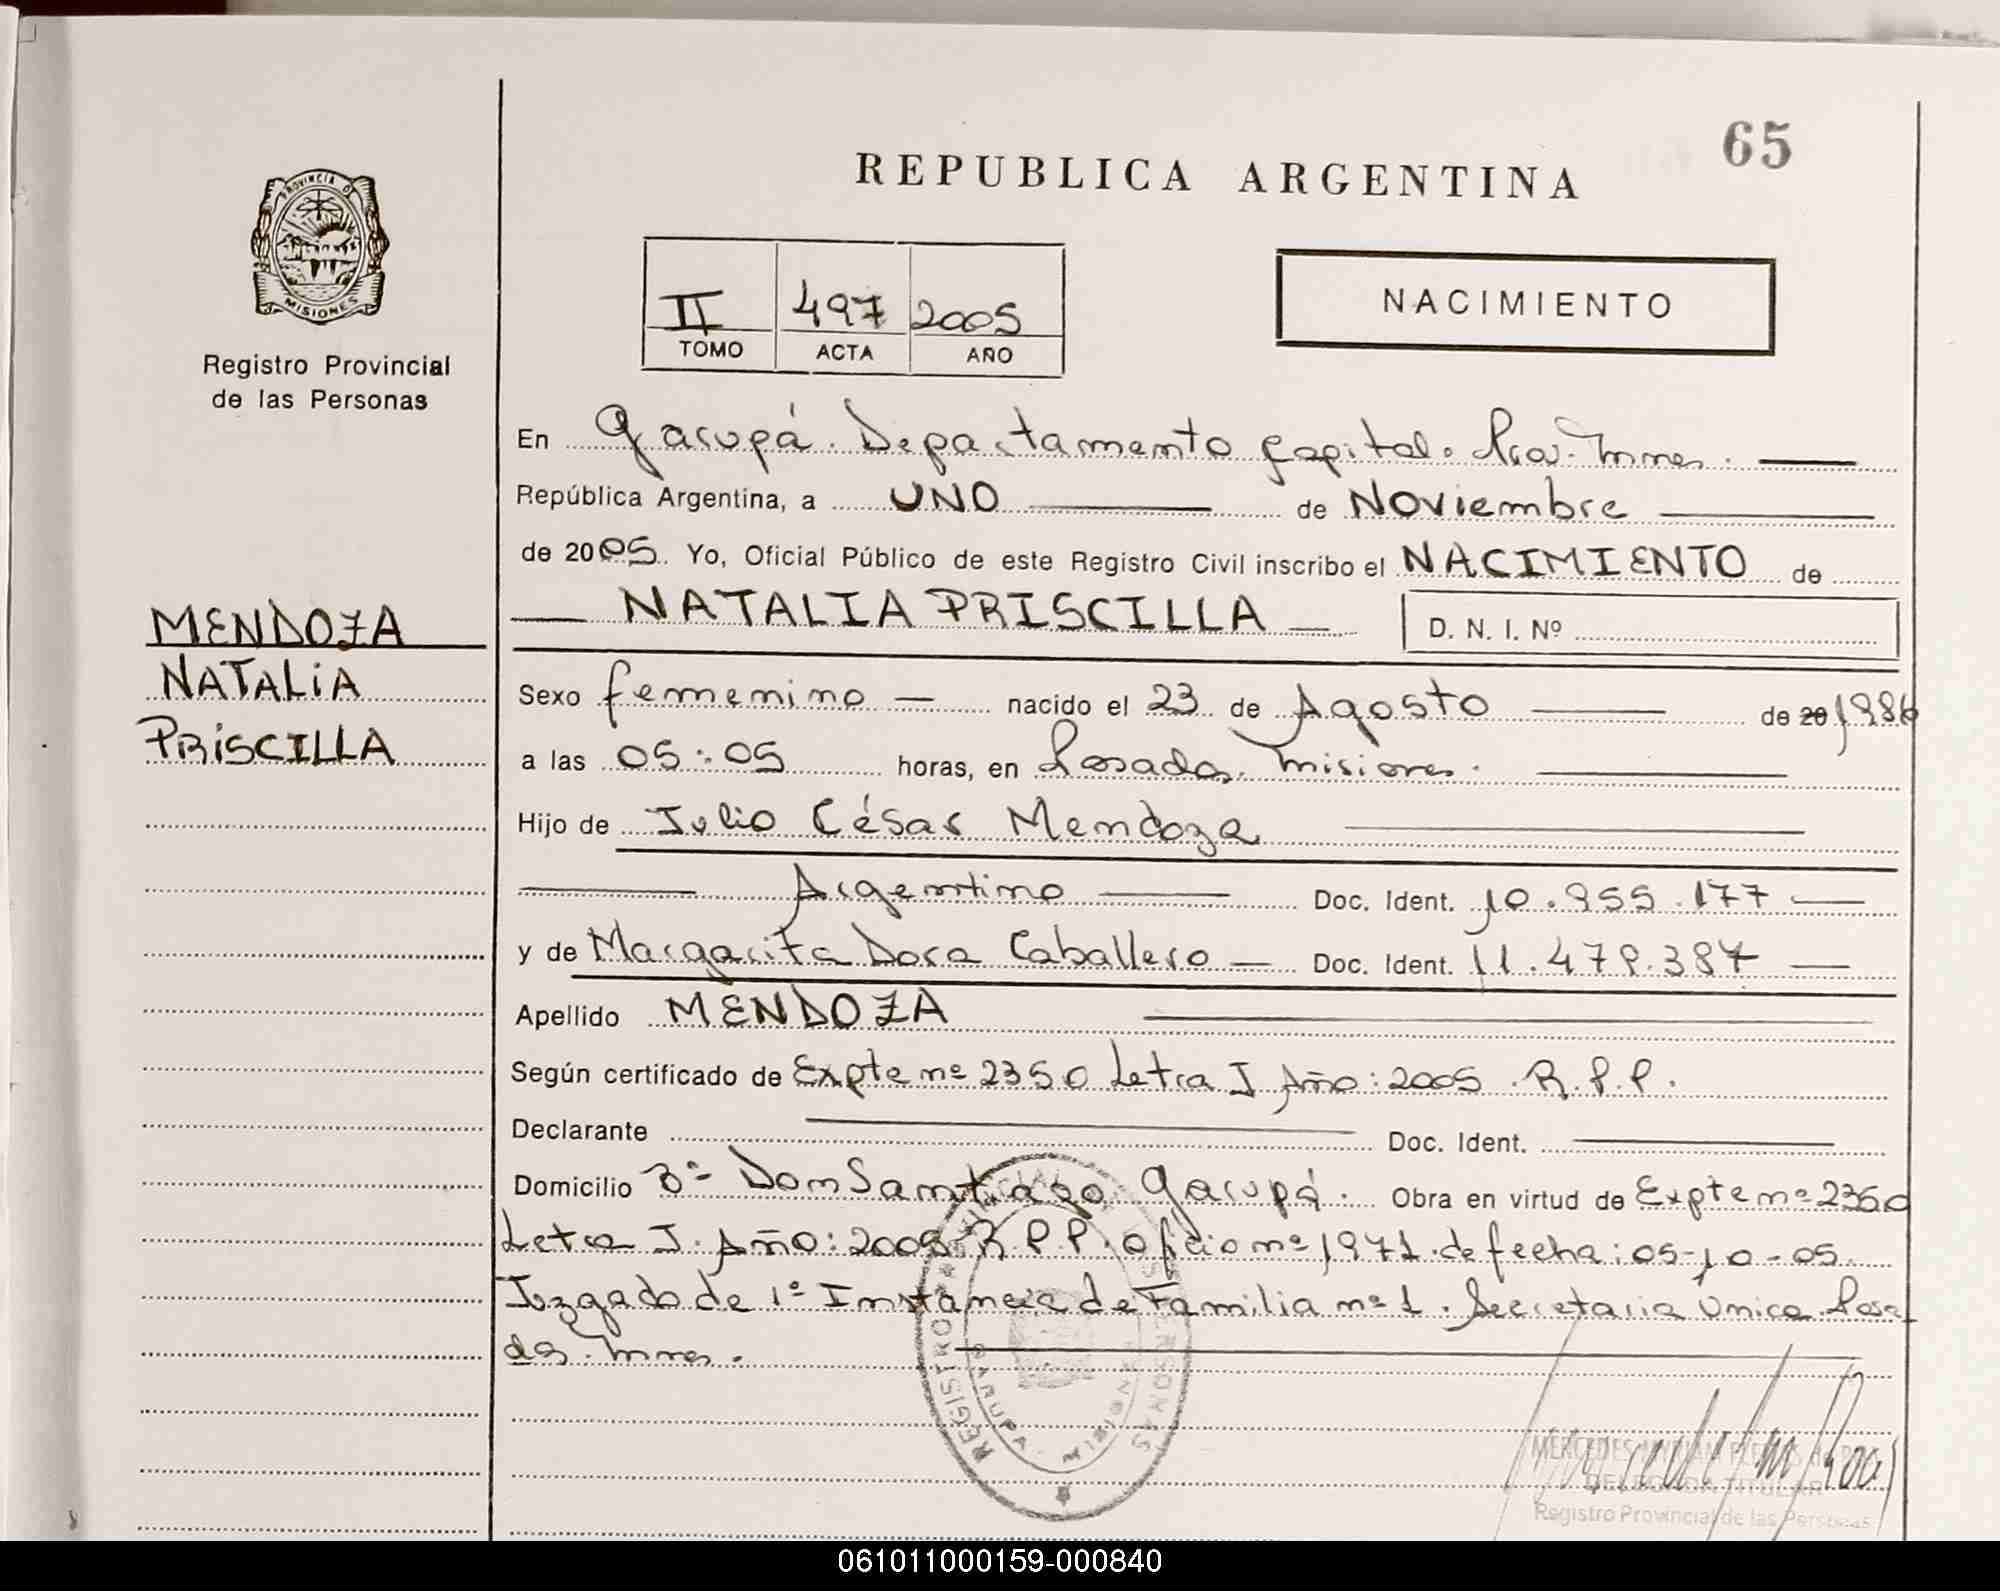 65
REPUBLICA ARGENTINA
PROVINCIA DE
MISIONES
Registro Provincial
de las Personas
II 497 2005
TOMO ACTA AÑO
NACIMIENTO
En Garupá. Departamento Capital. Prov. Mnes.
República Argentina, a UNO de Noviembre
de 2005. Yo, Oficial Público de este Registro Civil inscribo el NACIMIENTO de
NATALIA PRISCILLA D. N. I. Nº
MENDOZA
NATALIA
PRISCILLA
Sexo femenino nacido el 23 de Agosto de 20 1986
a las 05:05 horas, en Posadas. Misiones.
Hijo de Julio César Mendoza
Argentino Doc. Ident. 10.955.177
y de Margarita Dora Caballero Doc. Ident. 11.479.387
Apellido MENDOZA
Según certificado de Expte nº 2350 Letra I Año: 2005. R.P.P.
Declarante Doc. Ident.
Domicilio Bº Don Santiago Garupá. Obra en virtud de Expte nº 2350
Letra I. Año: 2005 R.P.P. Oficio nº 1971. de fecha: 05-10-05.
Juzgado de 1º Instancia de Familia nº 1. Secretaria Unica. Posa
das. Mnes.
REGISTRO PROVINCIAL DE LAS PERSONAS
GARUPA - MISIONES
MERCEDES
DELEGADA TITULAR
Registro Provincial de las Personas
061011000159-000840